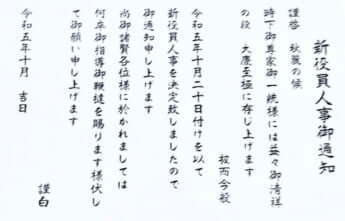 新役員人事御通知
謹啓 秋麗の候
時下御尊家御一統様には益々御清祥
の段 大慶至極に存し上げます
扨而今般
令和五年十月二十日付けを以て
新役員人事を決定致しましたので
御通知申し上げます
尚御諸賢各位様に於かれましては
何卒御指導御鞭撻を賜ります様伏し
て御願い申し上げます
令和五年十月 吉日
謹白